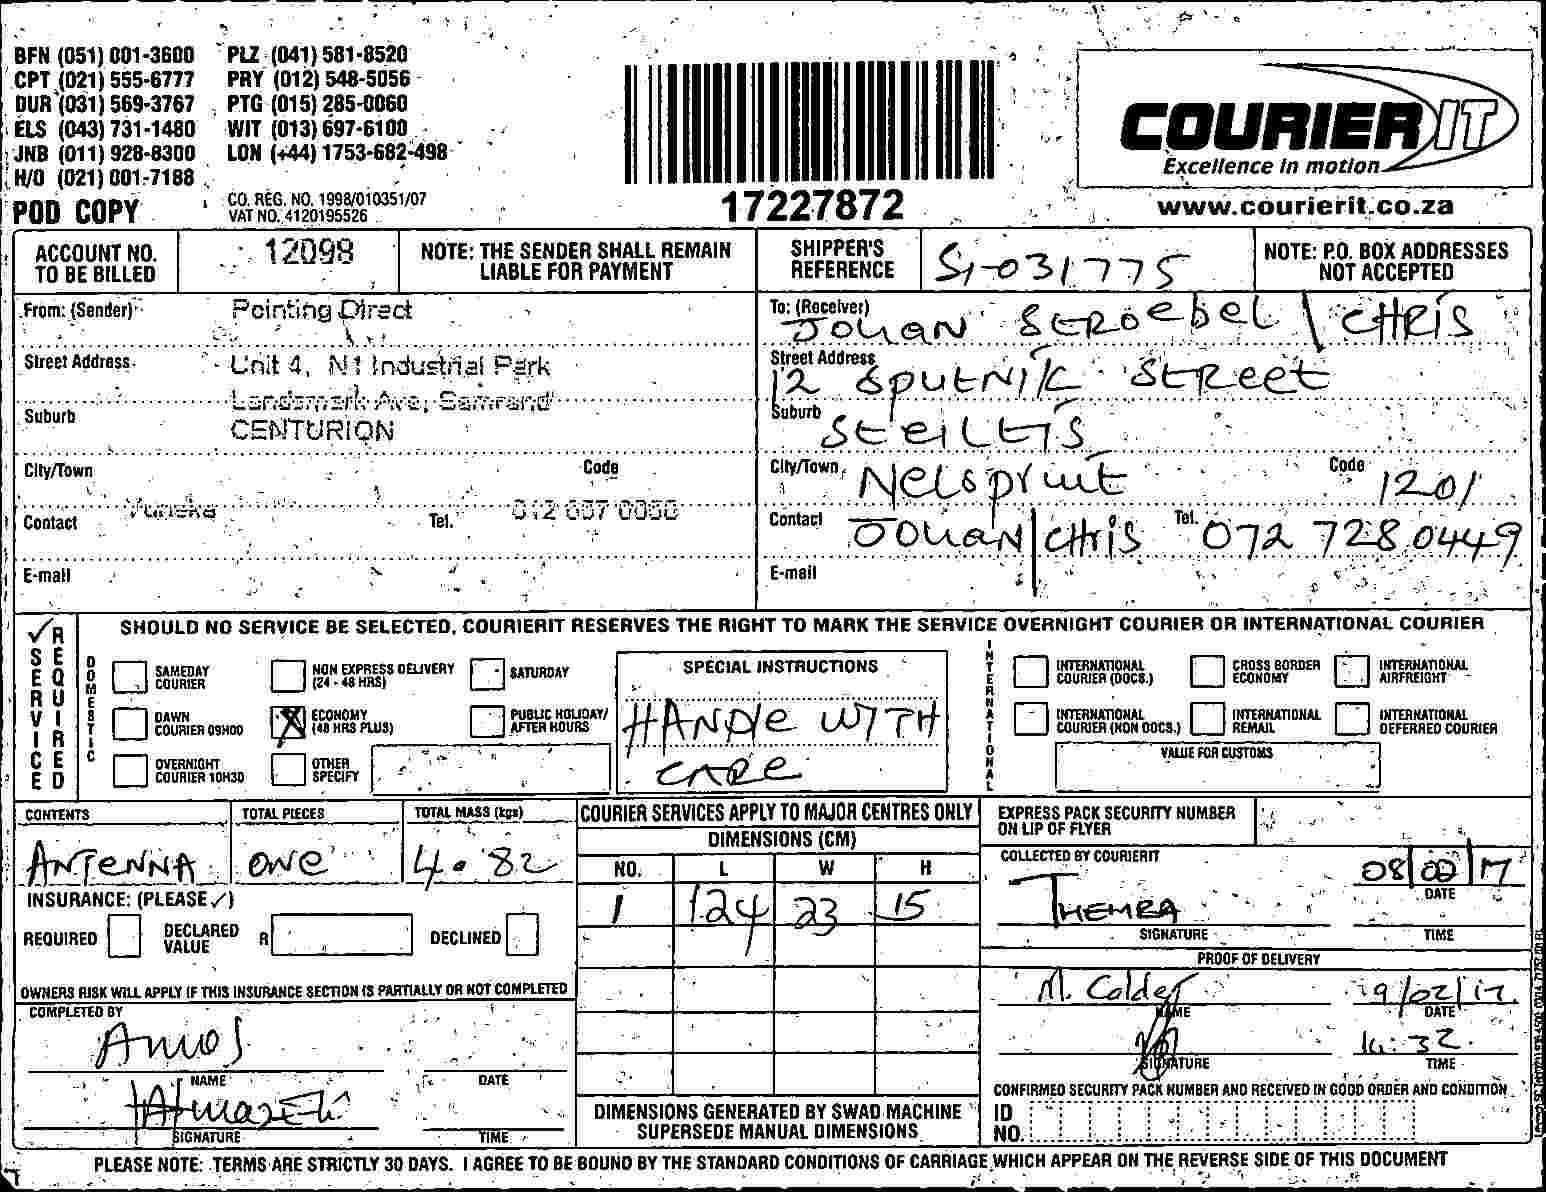 BFN (051) 001-3600 PLZ (041) 581-8520
CPT (021) 555-6777 PRY (012) 548-5056
DUR (031) 569-3767 PTG (015) 285-0060
ELS (043) 731-1480 WIT (013) 697-6100
JNB (011) 928-8300 LON (+44) 1753-682-498
H/O (021) 001-7188
POD COPY
CO. REG. NO. 1998/010351/07
VAT NO. 4120195526
17227872
COURIER IT
Excellence in motion
www.courierit.co.za
ACCOUNT NO. TO BE BILLED 12098
NOTE: THE SENDER SHALL REMAIN LIABLE FOR PAYMENT
SHIPPER'S REFERENCE SI-031775
NOTE: P.O. BOX ADDRESSES NOT ACCEPTED
From: (Sender) Pointing Direct
Street Address Unit 4, N1 Industrial Park
Landsmark Ave, Samrand
Suburb CENTURION
City/Town Code
Contact Tel.
E-mail
To: (Receiver) Johan Stroebel / CHRIS
Street Address 12 Sputnik Street
Suburb Steiltes
City/Town Nelspruit Code 1201
Contact Johan/Chris Tel. 072 728 0449
E-mail
✓ SERVICE REQUIRED
SHOULD NO SERVICE BE SELECTED, COURIERIT RESERVES THE RIGHT TO MARK THE SERVICE OVERNIGHT COURIER OR INTERNATIONAL COURIER
DOMESTIC
SAMEDAY COURIER
NON EXPRESS DELIVERY (24 - 48 HRS)
SATURDAY
DAWN COURIER 09H00
X ECONOMY (48 HRS PLUS)
PUBLIC HOLIDAY/ AFTER HOURS
OVERNIGHT COURIER 10H30
OTHER SPECIFY
SPECIAL INSTRUCTIONS
HANDLE WITH
CARE
INTERNATIONAL
INTERNATIONAL COURIER (DOCS.)
CROSS BORDER ECONOMY
INTERNATIONAL AIRFREIGHT
INTERNATIONAL COURIER (NON DOCS.)
INTERNATIONAL REMAIL
INTERNATIONAL DEFERRED COURIER
VALUE FOR CUSTOMS
CONTENTS TOTAL PIECES TOTAL MASS (kgs)
ANTENNA ONE 4.82
INSURANCE: (PLEASE ✓)
REQUIRED DECLARED VALUE R DECLINED
OWNERS RISK WILL APPLY IF THIS INSURANCE SECTION IS PARTIALLY OR NOT COMPLETED
COMPLETED BY
Amos
NAME DATE
SIGNATURE TIME
COURIER SERVICES APPLY TO MAJOR CENTRES ONLY
DIMENSIONS (CM)
NO. L W H
1 124 23 15
DIMENSIONS GENERATED BY SWAD MACHINE
SUPERSEDE MANUAL DIMENSIONS
EXPRESS PACK SECURITY NUMBER
ON LIP OF FLYER
COLLECTED BY COURIERIT
THEMBA 08/02/17
DATE
SIGNATURE TIME
PROOF OF DELIVERY
M. Calder 9/02/17
NAME DATE
14:32
SIGNATURE TIME
CONFIRMED SECURITY PACK NUMBER AND RECEIVED IN GOOD ORDER AND CONDITION
ID NO.
PLEASE NOTE: TERMS ARE STRICTLY 30 DAYS. I AGREE TO BE BOUND BY THE STANDARD CONDITIONS OF CARRIAGE WHICH APPEAR ON THE REVERSE SIDE OF THIS DOCUMENT